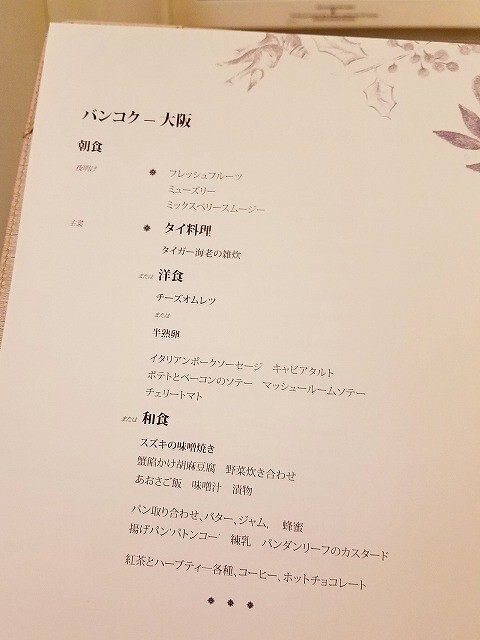 バンコク – 大阪
朝食
夜明け
フレッシュフルーツ
ミューズリー
ミックスベリースムージー
主菜
タイ料理
タイガー海老の雑炊
または 洋食
チーズオムレツ
または
半熟卵
イタリアンポークソーセージ キャビアタルト
ポテトとベーコンのソテー マッシュルームソテー
チェリートマト
または 和食
スズキの味噌焼き
蟹餡かけ胡麻豆腐 野菜炊き合わせ
あおさご飯 味噌汁 漬物
パン取り合わせ、バター、ジャム、 蜂蜜
揚げパン'パトンコー' 練乳 パンダンリーフのカスタード
紅茶とハーブティ―各種、コーヒー、ホットチョコレート